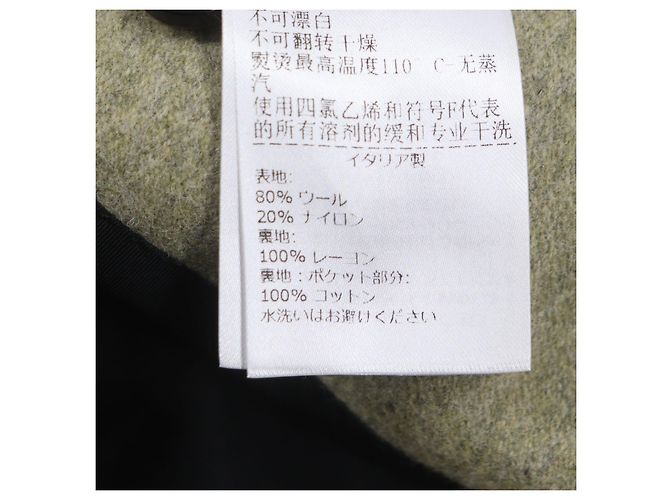 不可漂白
不可翻转干燥
熨烫最高温度110 C-无蒸
汽
使用四氯乙烯和符号F代表
的所有溶剂的缓和专业干洗
イタリア製
表地:
80% ウール
20% ナイロン
裏地:
100% レーヨン
裏地：ポケット部分:
100% コットン
水洗いはお避けください